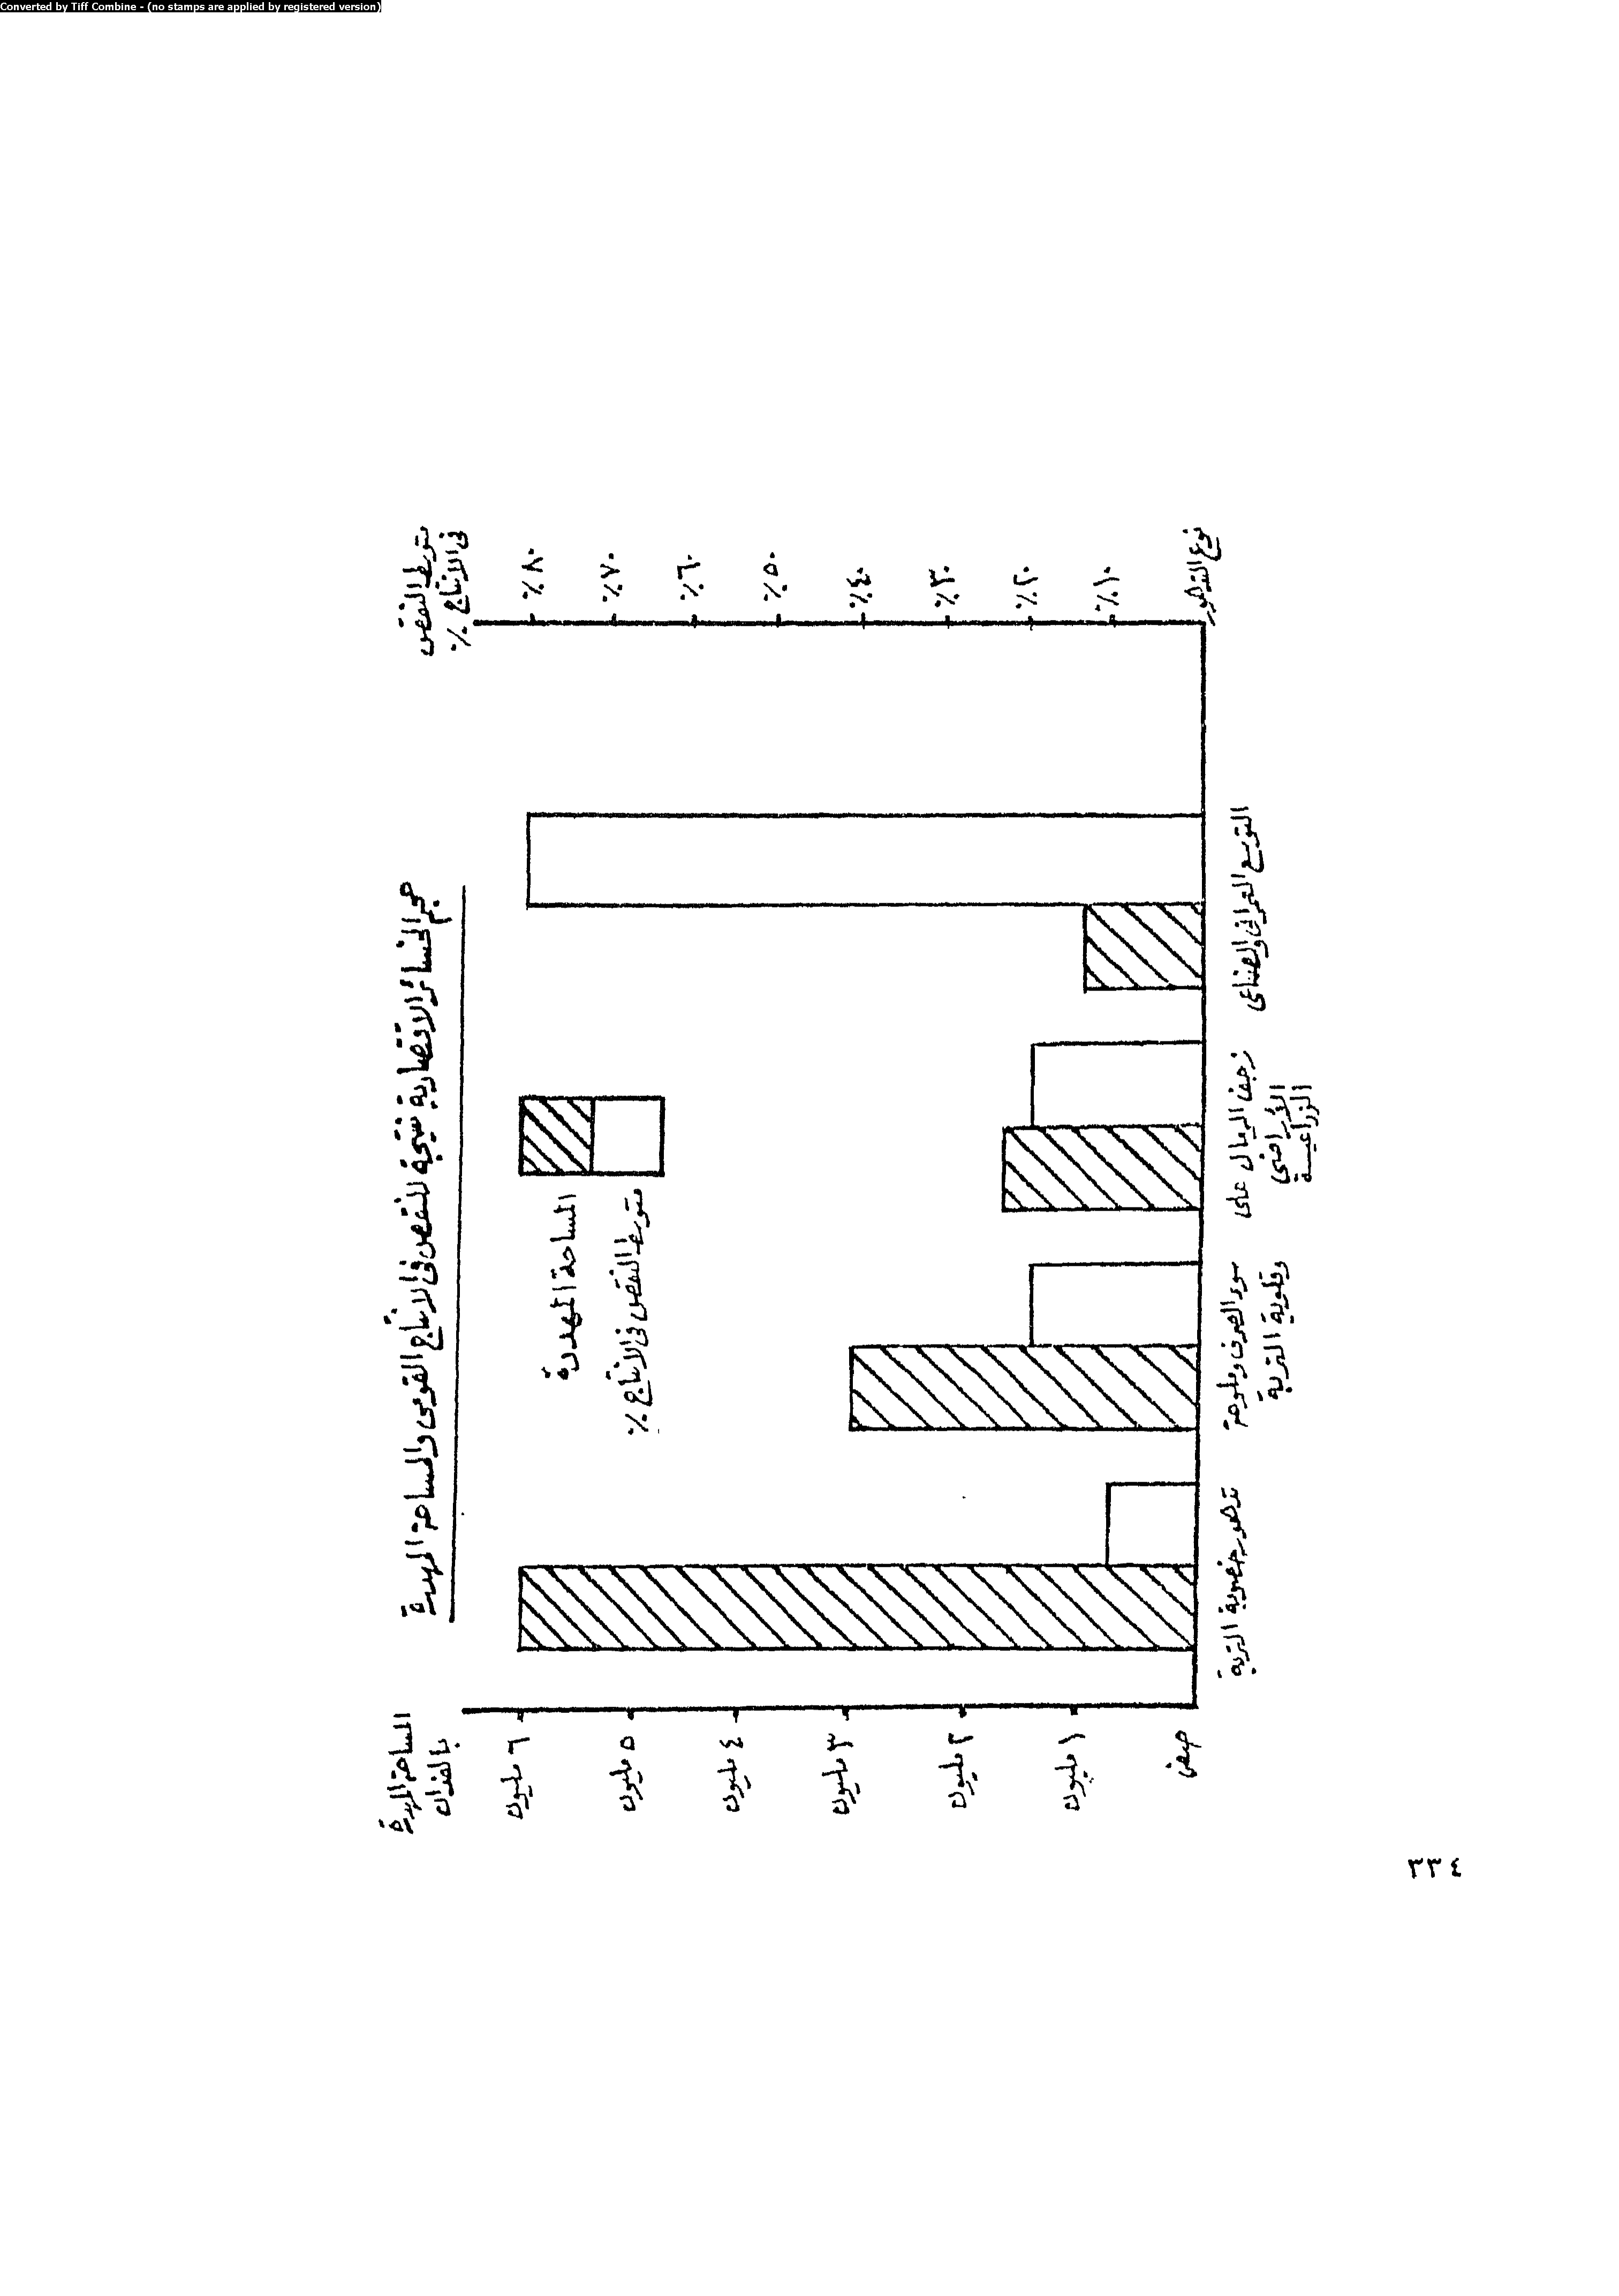 Converted by Tiff Combine - (no stamps are applied by registered version)
حجم الخسائر الاقتصادية نتيجة للنقص فى الانتاج القومى والمساحة المهددة
المساحة المهددة
بالفدان
٦ مليون
٥ مليون
٤ مليون
٣ مليون
٢ مليون
١ مليون
صفر
متوسط النقص
فى الانتاج %
٪٨٠
٪٧٠
٪٦٠
٪٥٠
٪٤٠
٪٣٠
٪٢٠
٪١٠
نوع التدهور
المساحة المهددة
متوسط النقص فى الانتاج %
تدهور خصوبة التربة
سوء الصرف وملوحة
وقلوية التربة
زحف الرمال على
الأراضى
الزراعيـة
التوسع العمرانى والصناعى
٣٣٤